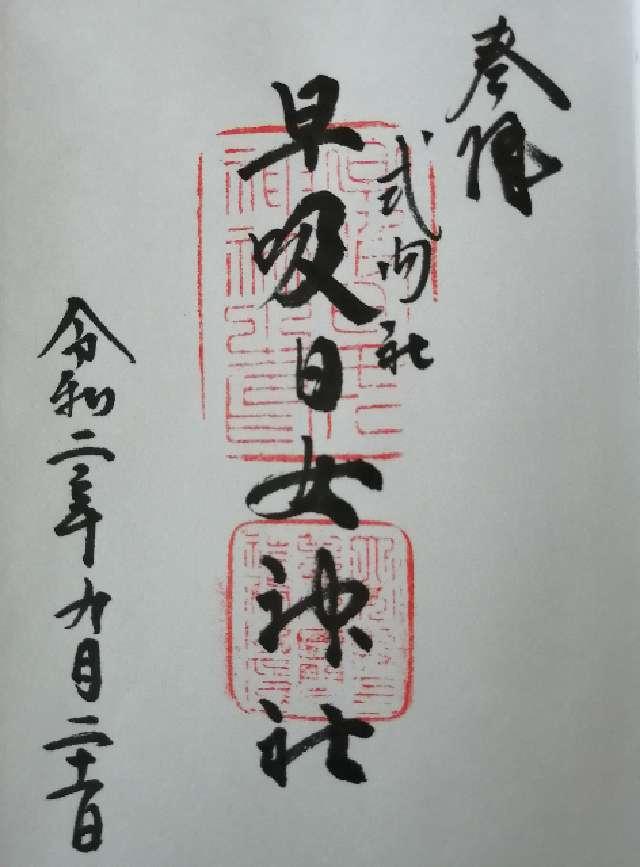 奉拝
式内社
早吸日女神社
令和二年九月二十一日